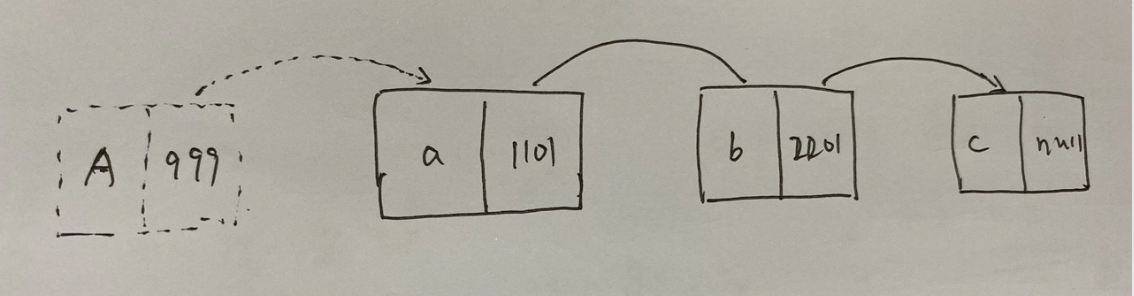 A 999 a 1101 b 2201 c null